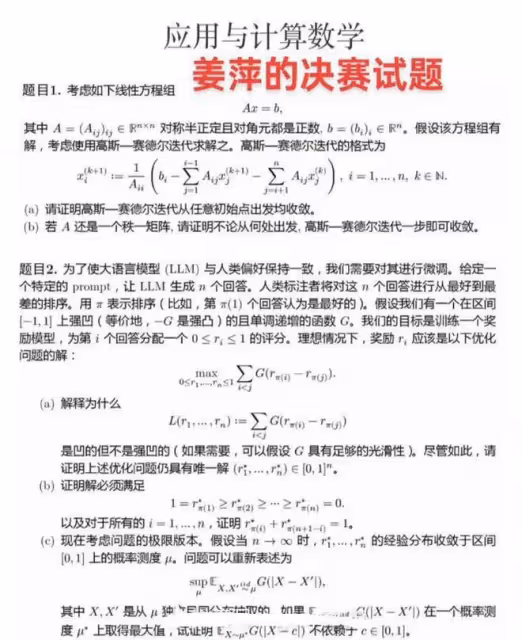 应用与计算数学
姜萍的决赛试题
题目1. 考虑如下线性方程组
Ax = b,
其中 A = (A_{ij})_{ij} ∈ ℝ^{n×n} 对称半正定且对角元都是正数, b = (b_i)_i ∈ ℝ^n。假设该方程组有
解，考虑使用高斯—赛德尔迭代求解之。高斯—赛德尔迭代的格式为
x_i^{(k+1)} := \frac{1}{A_{ii}} \left( b_i - \sum_{j=1}^{i-1} A_{ij} x_j^{(k+1)} - \sum_{j=i+1}^{n} A_{ij} x_j^{(k)} \right), i = 1, ..., n, k ∈ ℕ.
(a) 请证明高斯—赛德尔迭代从任意初始点出发均收敛。
(b) 若 A 还是一个秩一矩阵, 请证明不论从何处出发, 高斯—赛德尔迭代一步即可收敛。
题目2. 为了使大语言模型 (LLM) 与人类偏好保持一致，我们需要对其进行微调。给定一
个特定的 prompt，让 LLM 生成 n 个回答。人类标注者将对这 n 个回答进行从最好到最
差的排序。用 π 表示排序 (比如，第 π(1) 个回答认为是最好的)。假设我们有一个在区间
[−1, 1] 上强凹 (等价地，−G 是强凸) 的且单调递增的函数 G。我们的目标是训练一个奖
励模型，为第 i 个回答分配一个 0 ≤ r_i ≤ 1 的评分。理想情况下，奖励 r_i 应该是以下优化
问题的解：
\max_{0≤r_1,...,r_n≤1} \sum_{i<j} G(r_{π(i)} − r_{π(j)}).
(a) 解释为什么
L(r_1, ..., r_n) := \sum_{i<j} G(r_{π(i)} − r_{π(j)})
是凹的但不是强凹的 (如果需要，可以假设 G 具有足够的光滑性)。尽管如此，请
证明上述优化问题仍具有唯一解 (r_1^*, ..., r_n^*) ∈ [0, 1]^n。
(b) 证明解必须满足
1 = r^*_{π(1)} ≥ r^*_{π(2)} ≥ ⋯ ≥ r^*_{π(n)} = 0.
以及对于所有的 i = 1, ..., n，证明 r^*_{π(i)} + r^*_{π(n+1−i)} = 1。
(c) 现在考虑问题的极限版本。假设当 n → ∞ 时，r_1^*, ..., r_n^* 的经验分布收敛于区间
[0, 1] 上的概率测度 μ。问题可以重新表述为
\sup_{μ} 𝔼_{X,X' \overset{iid}{∼} μ} G(|X − X'|),
其中 X, X' 是从 μ 独立同分布抽取的。如果 G(|X − X'|) 在一个概率测
度 μ^* 上取得最大值，试证明 𝔼_{X∼μ^*} G(|X − c|) 不依赖于 c ∈ [0, 1]。